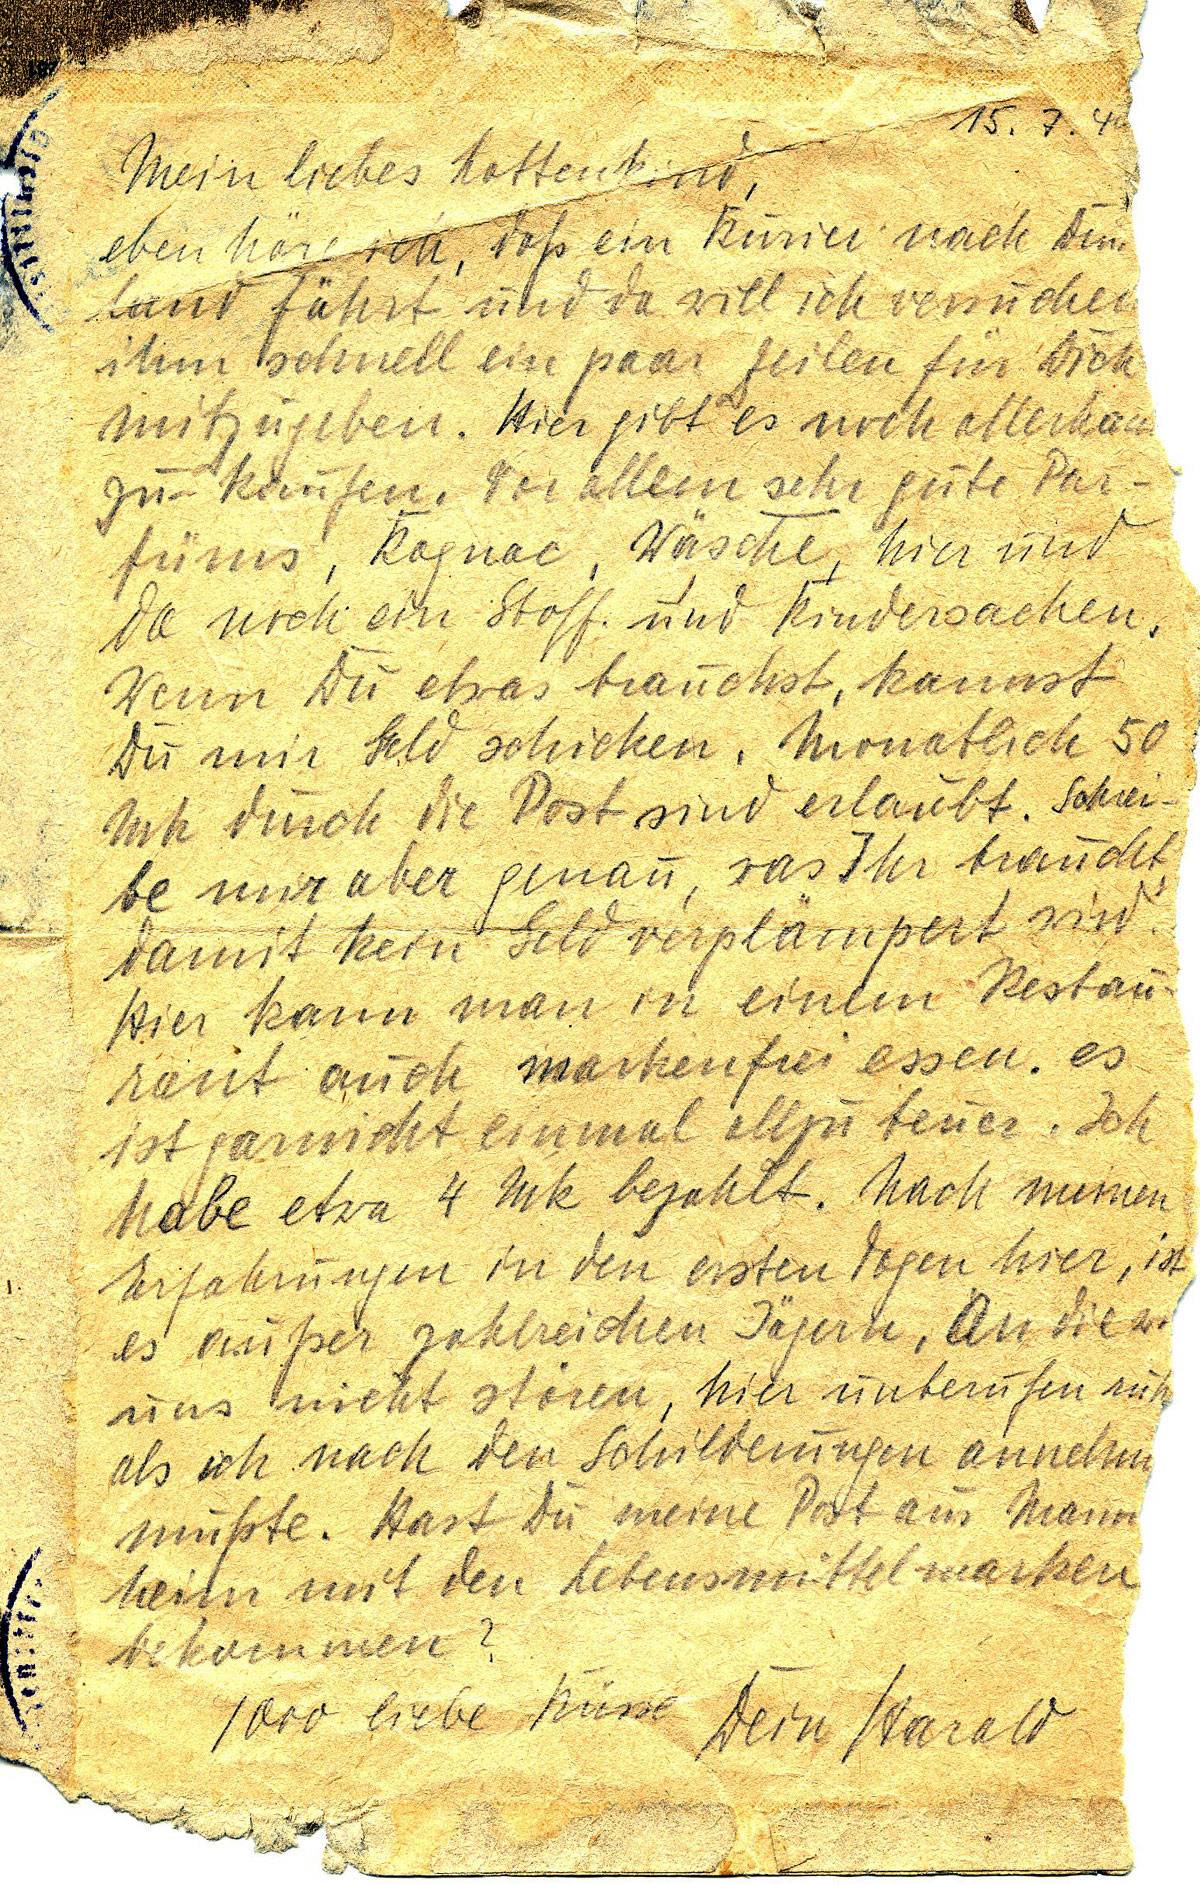 15. 7. 4
Mein liebes Kottenkind,
eben höre ich, daß ein Kurier nach
land fährt und da will ich versuchen
ihm schnell ein paar Zeilen für Dich
mitzugeben. Hier gibt es noch allerhan
zu kaufen. Vor allem sehr gute Par-
füms, Kognac, Wäsche, hier und
da noch ein Stoff. und Kindersachen.
Wenn Du etwas brauchst, kannst
Du mir Geld schicken. Monatlich 50
Mk durch die Post sind erlaubt. Schrei-
be mir aber genau, was Ihr braucht,
damit kein Geld verplämpert wird.
Hier kann man in einem Restau-
rant auch markenfrei essen. es
ist garnicht einmal allzu teuer. Ich
habe etwa 4 Mk bezahlt. Nach meinen
Erfahrungen in den ersten Tagen hier, ist
es außer zahlreichen Jägern, An die w
uns nicht stören, hier unberufen ruh
als ich nach den Schilderungen annehm
mußte. Hast Du meine Post aus Mann
heim mit den Lebensmittelmarken
bekommen?
1000 liebe Küsse Dein Harald